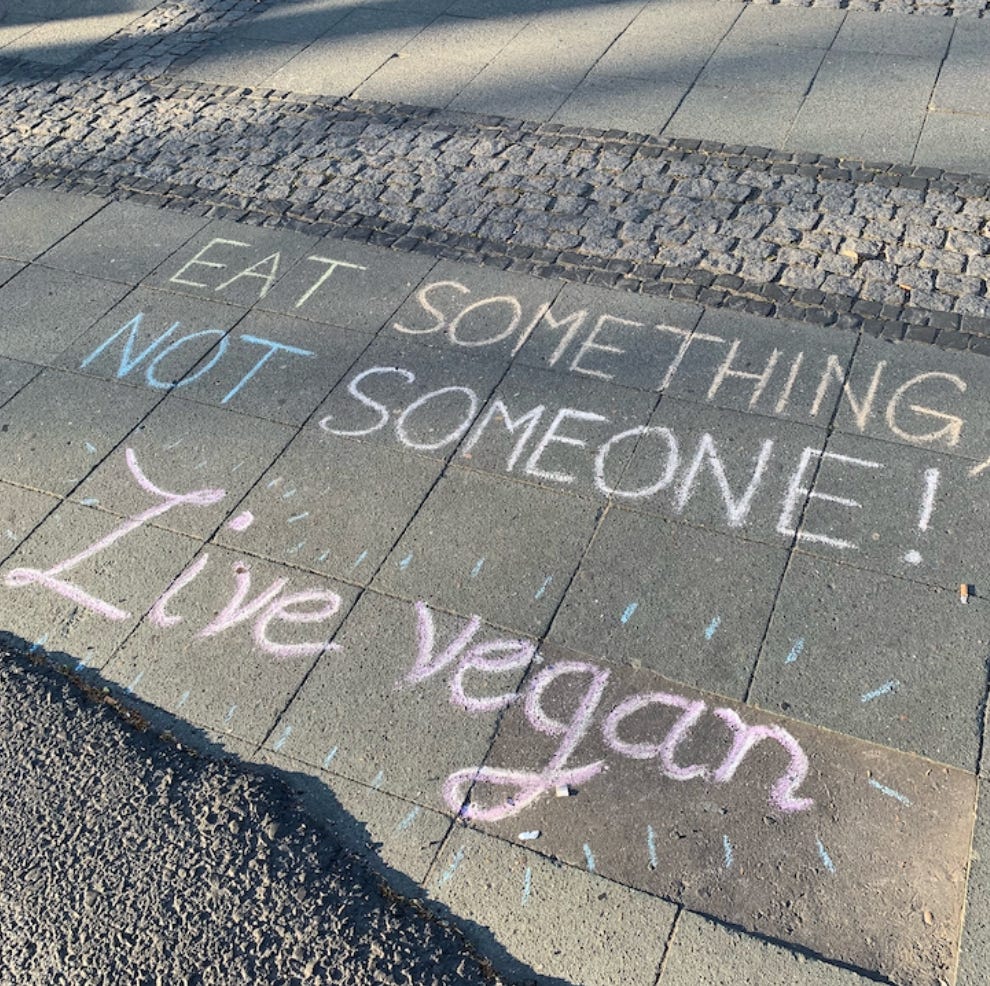 EAT SOMETHING,
NOT SOMEONE!
Live vegan